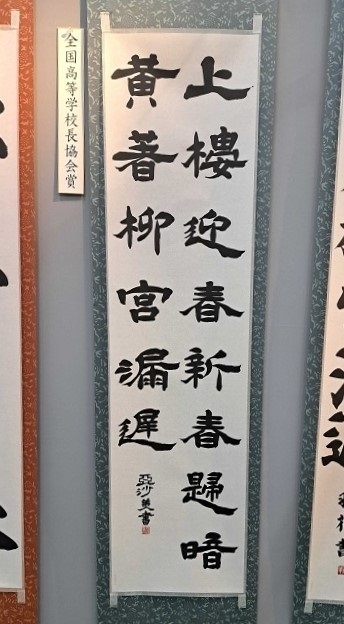 全国高等学校長協会賞
上樓迎春新春歸暗
黄著柳宮漏遲
亞沙美書